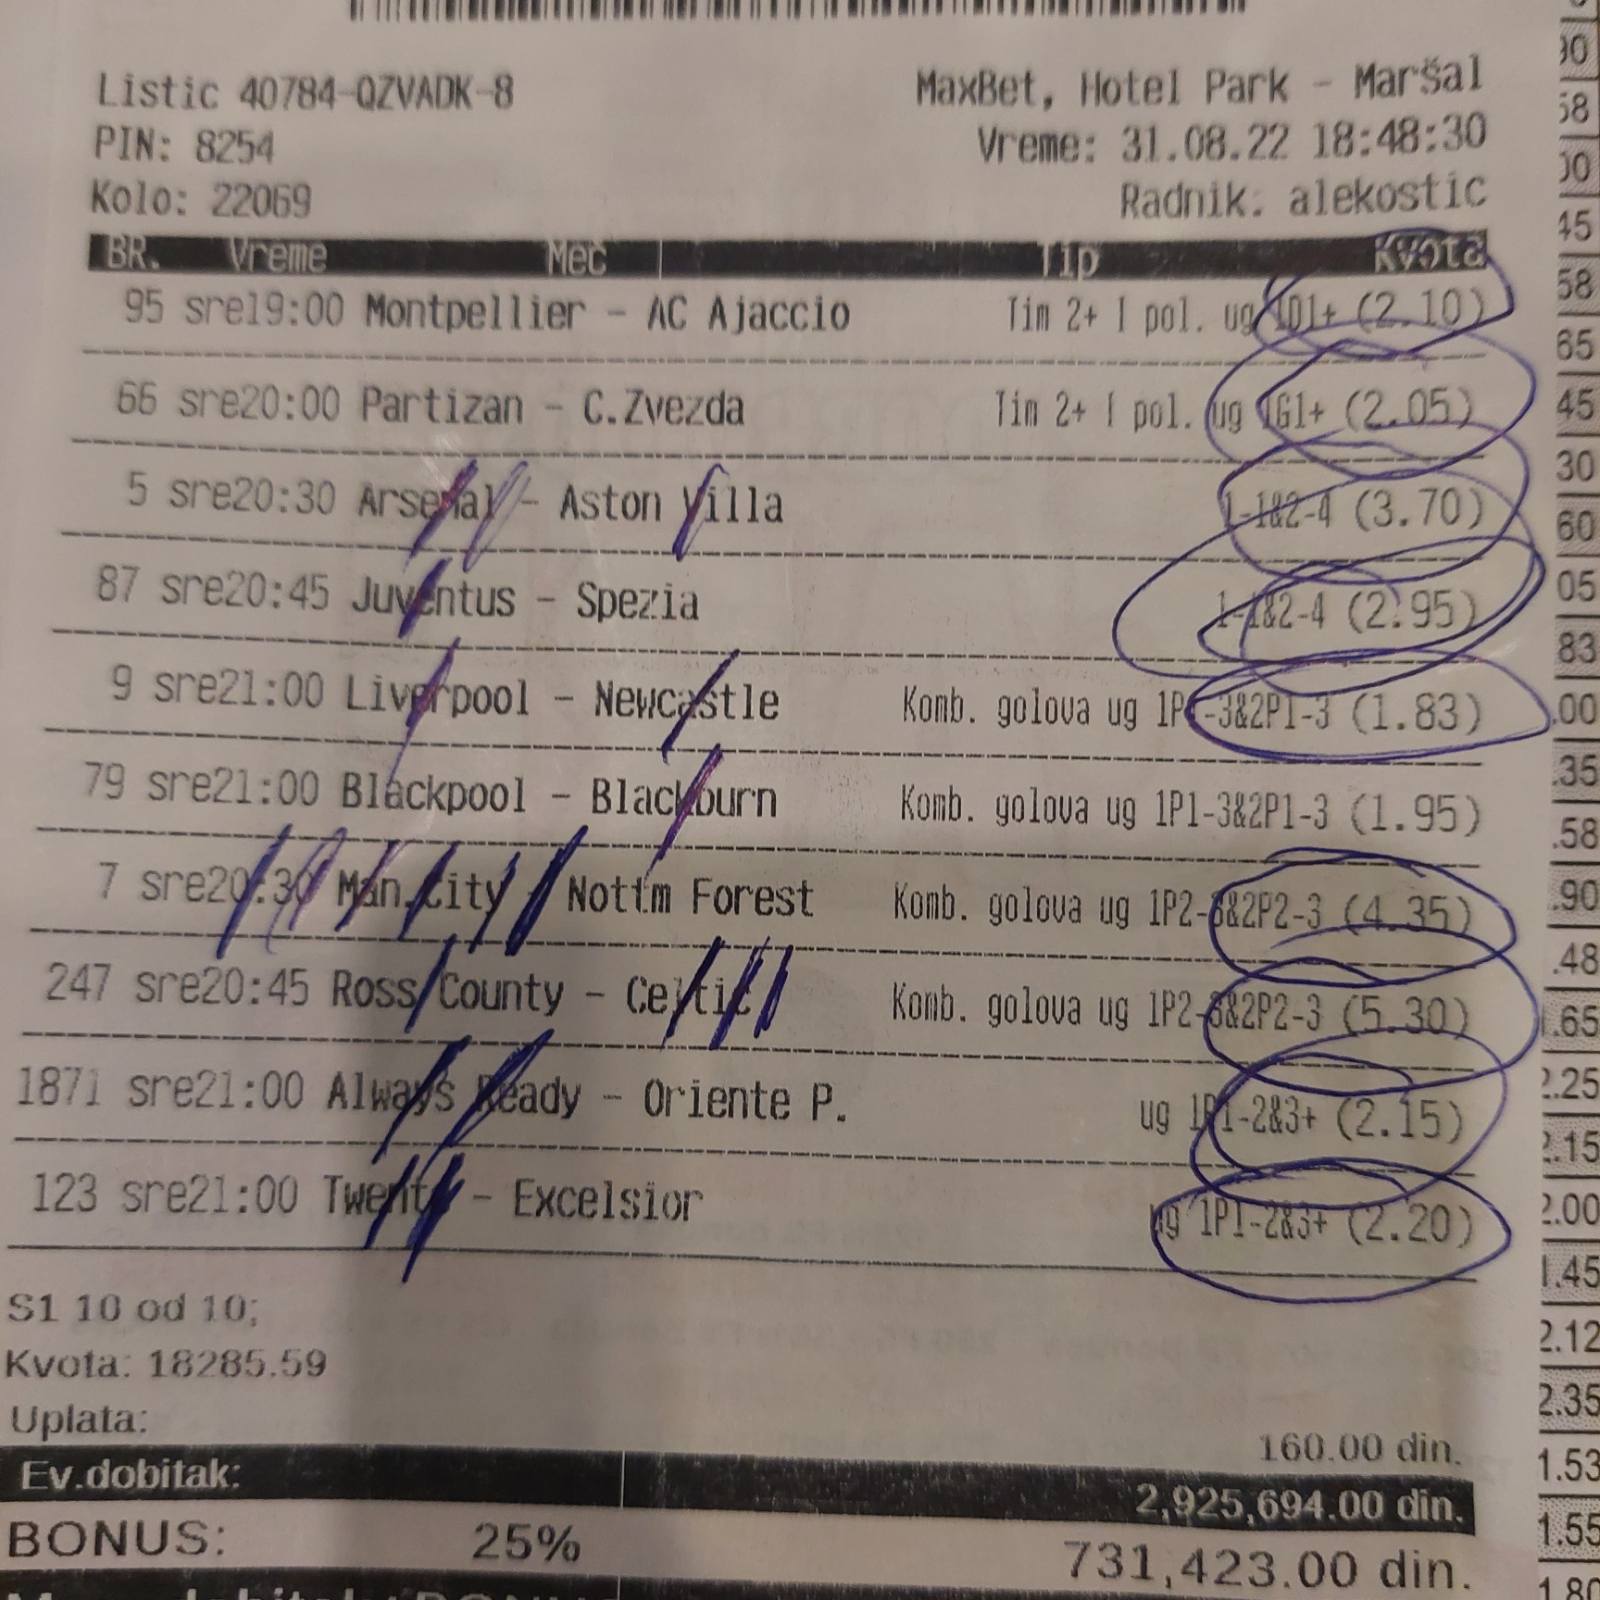 Listic 40784-QZVADK-8 MaxBet, Hotel Park - Maršal
PIN: 8254 Vreme: 31.08.22 18:48:30
Kolo: 22069 Radnik: alekostic
BR. Vreme Mec Tip Kvota
95 sre19:00 Montpellier - AC Ajaccio Tim 2+ I pol. ug 1D1+ (2.10)
66 sre20:00 Partizan - C.Zvezda Tim 2+ I pol. ug 1G1+ (2.05)
5 sre20:30 Arsenal - Aston Villa 1-1&2-4 (3.70)
87 sre20:45 Juventus - Spezia 1-1&2-4 (2.95)
9 sre21:00 Liverpool - Newcastle Komb. golova ug 1P1-3&2P1-3 (1.83)
79 sre21:00 Blackpool - Blackburn Komb. golova ug 1P1-3&2P1-3 (1.95)
7 sre20:30 Man.City - Nottm Forest Komb. golova ug 1P2-3&2P2-3 (4.35)
247 sre20:45 Ross County - Celtic Komb. golova ug 1P2-3&2P2-3 (5.30)
1871 sre21:00 Always Ready - Oriente P. ug 1P1-2&3+ (2.15)
123 sre21:00 Twente - Excelsior ug 1P1-2&3+ (2.20)
S1 10 od 10;
Kvota: 18285.59
Uplata: 160.00 din.
Ev.dobitak: 2,925,694.00 din.
BONUS: 25% 731,423.00 din.
58
65
45
30
60
05
83
.00
.35
.58
.90
.48
.65
2.25
2.15
2.00
1.45
2.12
2.35
1.53
1.55
1.80